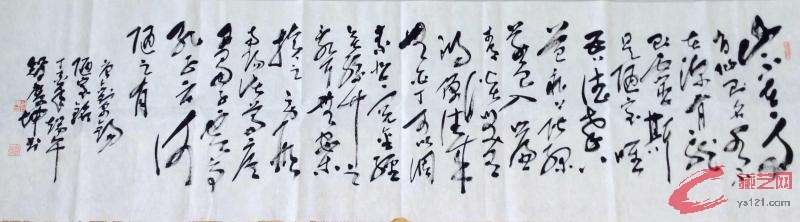 山不在高
有仙则名水不
在深有龙
则灵斯
是陋室惟
吾德馨
苔痕上阶绿
草色入帘
青谈笑有
鸿儒往来
无白丁可以调
素琴阅金经
无丝竹之
乱耳无案牍
之劳形
南阳诸葛庐
西蜀子云亭
孔子云何
陋之有
唐刘禹锡
陋室铭
丁酉年端午
坤书
藏艺网
ys121.com